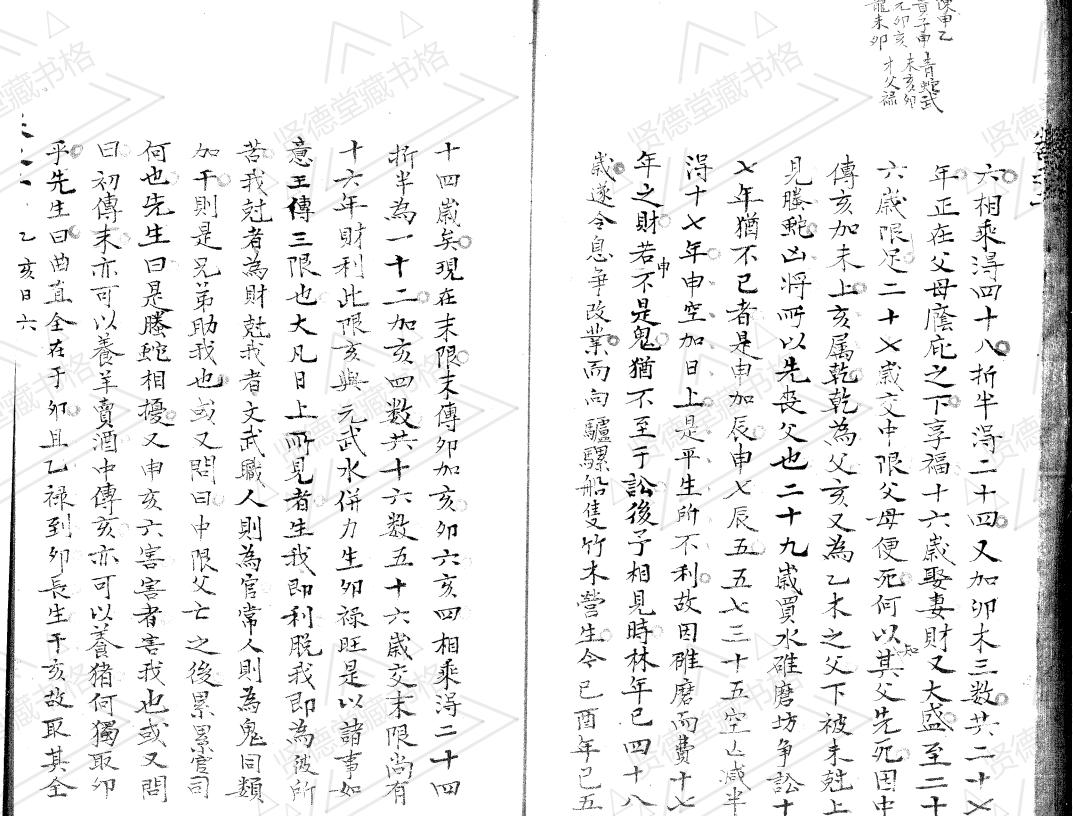 六相乘淂四十八折半淂二十四又加卯木三数共二十七
年正在父母廕庇之下享福十六歲娶妻財又大盛至二十
六歲限足二十七歲交中限父母便死何以知其父先死因中
傳亥加未上亥属乾乾為父亥又為乙木之父下被未尅上
見螣蛇凶將所以先丧父也二十九歲買水碓磨坊争訟十
七年猶不已者是申加辰申七辰五五七三十五空亡减半
淂十七年申空加日上是平生所不利故因碓磨而費十七
年之財若不是申鬼猶不至于訟後予相見時林年已四十八
歲遂令息争改業而向驢騾船隻竹木營生今己酉年已五
十四歲矣現在末限末傳卯加亥卯六亥四相乘淂二十四
折半為一十二加亥四数共十六数五十六歲交末限尚有
十六年財利此限亥與元武水併力生卯禄旺是以諸事如
意王傳三限也大凡日上所見者生我即利脱我即為彼所
苦我尅者為財尅我者文武職人則為官常人則為鬼同類
加干則是兄弟助我也或又問曰中限父亡之後累累官司
何也先生曰是螣蛇相擾又申亥六害害者害我也或又問
曰初傳未亦可以養羊賣酒中傳亥亦可以養猪何獨取卯
乎先生曰曲直全在于卯且乙禄到卯長生于亥故取其全
乙亥日六
陳申乙
青子申
元卯亥
龍未卯
青蛇武
未亥卯
才父禄
贤德堂藏书格